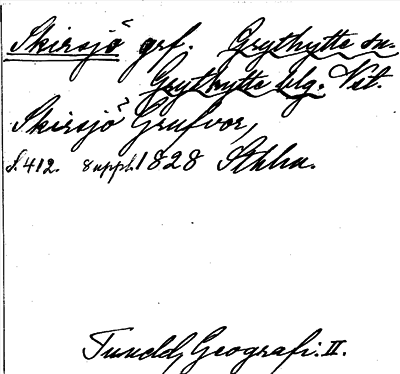 Skirsjö grf. Grythytte sn.
Grythytte blg. Vst.
Skirsjö Grufvor,
S. 412. 8 uppl. 1828 Sthlm.
Tuneld, Geografi. II.